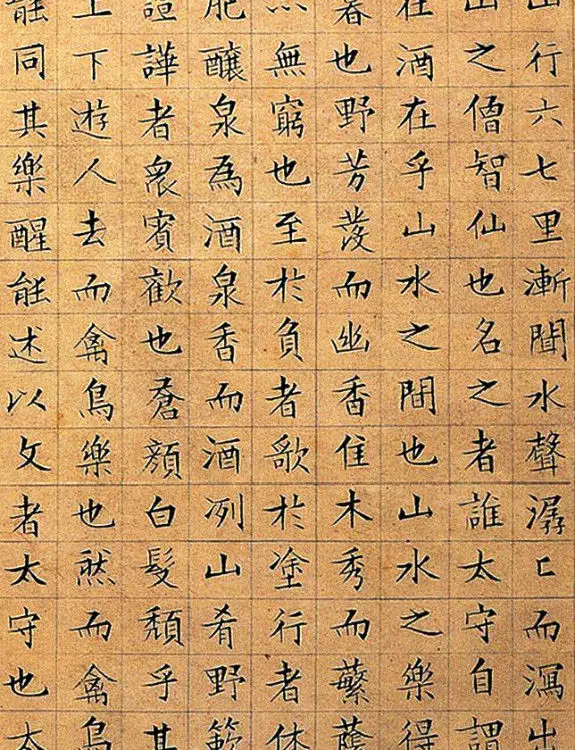 山行六七里漸聞水聲潺〻而瀉出
山之僧智仙也名之者誰太守自謂
在酒在乎山水之間也山水之樂得
暮也野芳發而幽香佳木秀而繁蔭
亦無窮也至於負者歌於塗行者休
肥釀泉為酒泉香而酒冽山肴野蔌
諠譁者衆賓歡也蒼顏白髮頽乎其
上下遊人去而禽鳥樂也然而禽鳥
能同其樂醒能述以文者太守也太